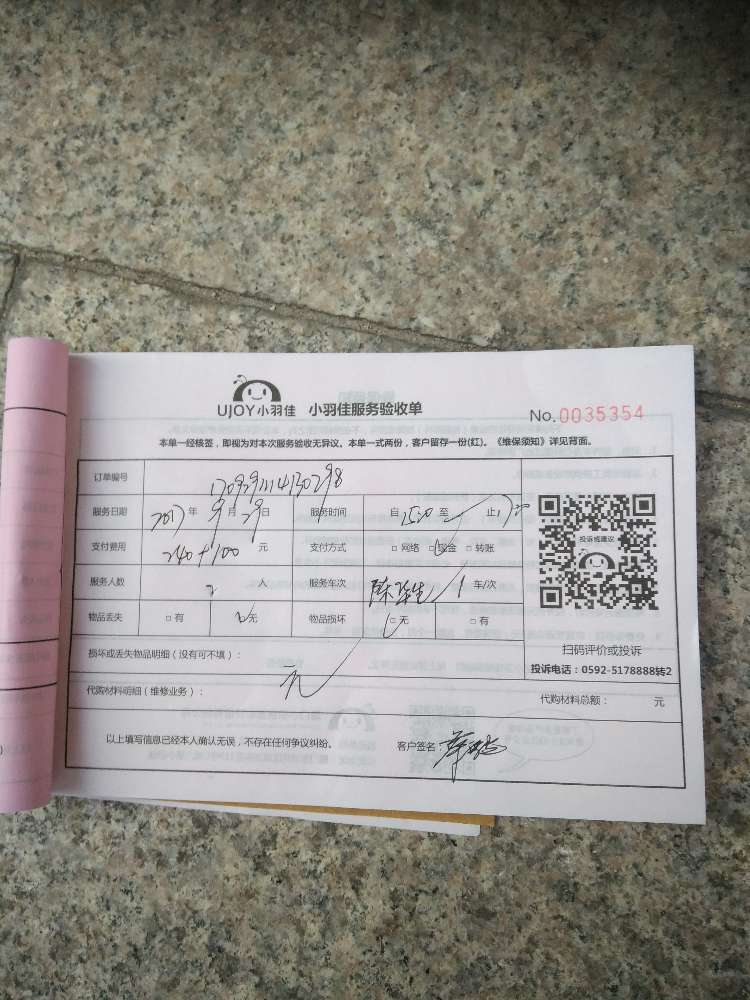 UJOY小羽佳 小羽佳服务验收单
No.0035354
本单一经核签，即视为对本次服务验收无异议。本单一式两份，客户留存一份(红)。《维保须知》详见背面。
订单编号
服务日期 2017 年 9 月 29 日 服务时间 自 至 止
支付费用 240+100 元 支付方式 □ 网络 □ 现金 □ 转账
服务人数 2 人 服务车次 1 车/次
物品丢失 □ 有 □ 无 物品损坏 □ 无 □ 有
投诉或建议
扫码评价或投诉
投诉电话：0592-5178888转2
损坏或丢失物品明细（没有可不填）： 无
代购材料明细（维修业务）： 代购材料总额： 元
以上填写信息已经本人确认无误，不存在任何争议纠纷。 客户签名：